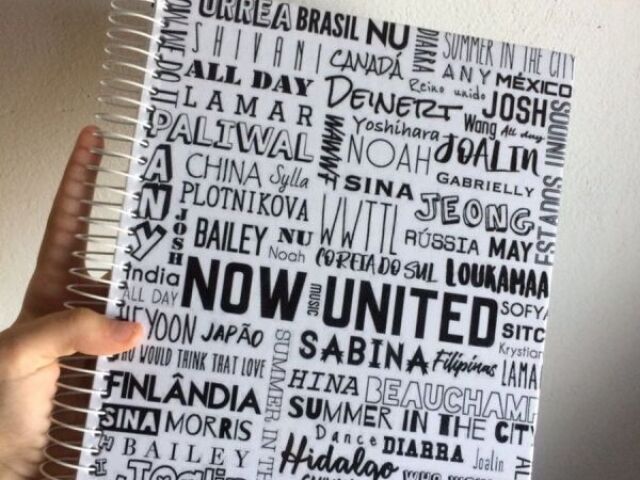 URREA BRASIL NU
DIARRA
SUMMER IN THE CITY
CAN WE DO IT
SHIVANI
CANADÁ
ANY MÉXICO
ALL DAY
Reino unido
JOSH
LAMAR
DEINERT
Wang All day
PALIWAL
WWWT
Yoshihara
NOAH
JOALIN
ESTADOS UNIDOS
ANY
CHINA Sylla
SINA
GABRIELLY
PLOTNIKOVA
WWTTL
JEONG
JOSH
BAILEY NU
RÚSSIA MAY
Noah COREIA DO SUL LOUKAMAA
India
NOW MUSIC UNITED
ALL DAY
SOFYA
HEYOON JAPÃO
SITC
SABINA Filipinas
Krystian
WHO WOULD THINK THAT LOVE
SUMMER IN THE
LAMA
FINLÂNDIA
HINA BEAUCHAMP
SINA MORRIS
SUMMER IN THE CITY
BAILEY
Dance DIARRA Joalin
AL
Joalin
Hidalgo